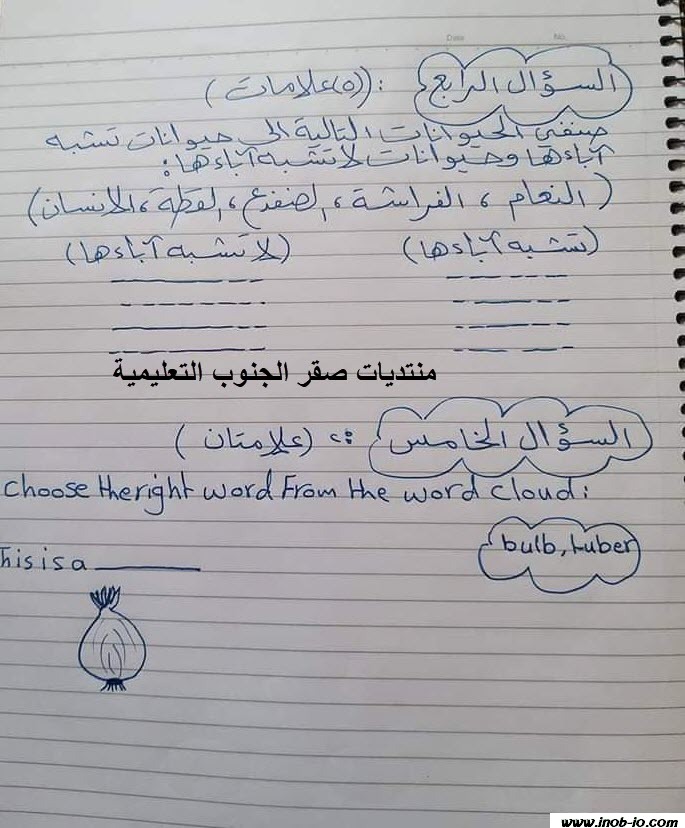 Date
No.
السؤال الرابع : ((٥)علامات)
صنفي الحيوانات التالية الى حيوانات تشبه
آباءها وحيوانات لا تشبه آباءها:
(النعام ، الفراشة ، الضفدع ، القطة ، الانسان)
(تشبه آباءها) (لا تشبه آباءها)
منتديات صقر الجنوب التعليمية
السؤال الخامس :- (علامتان)
choose the right word From the word cloud:
bulb, tuber
This is a ________
www.jnob-jo.com